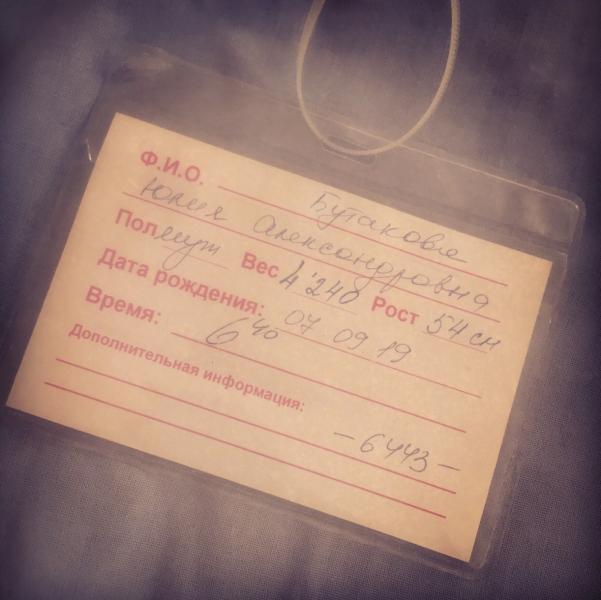 Ф.И.О. Бутакова
Юлия Александровна
Пол муж Вес 4'240 Рост 54 см
Дата рождения: 07 09 19
Время: 6 40
Дополнительная информация:
- 6443 -